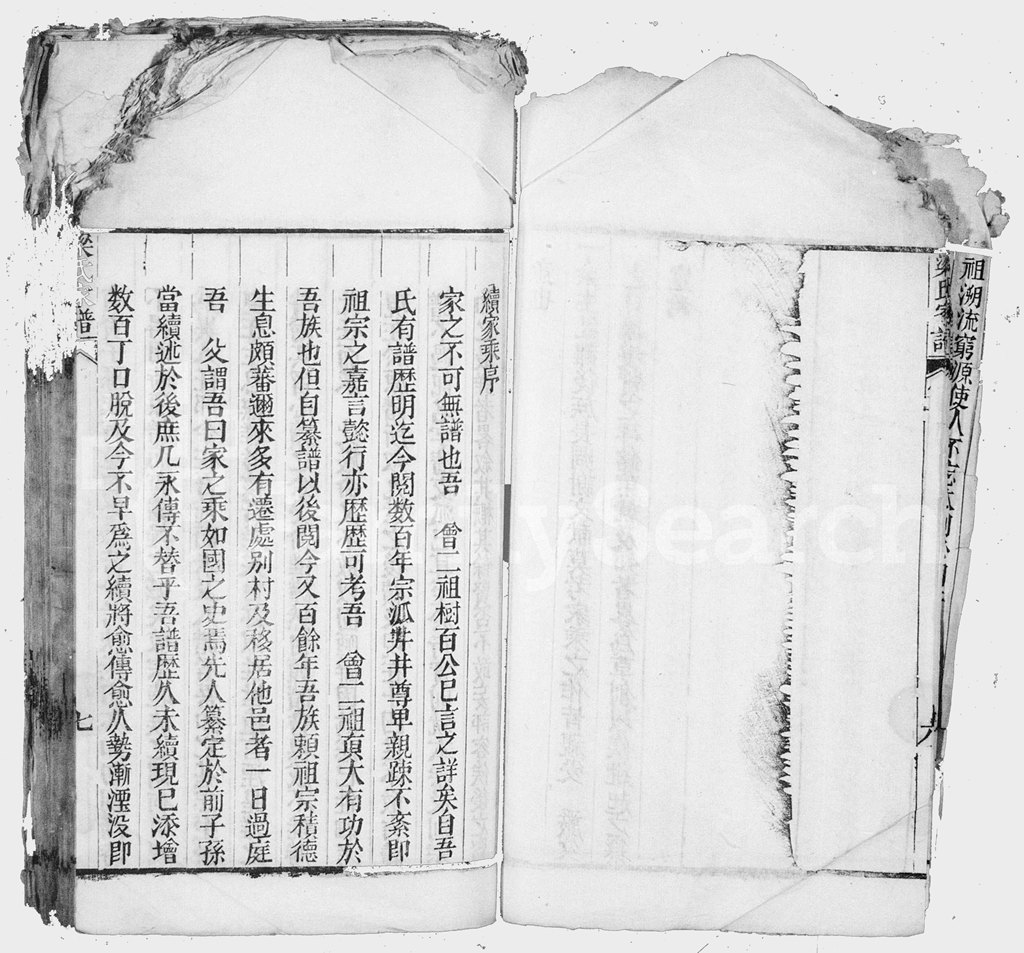 祖溯流窮源使人不忘本
梁氏家譜
六
續家乘序
家之不可無譜也吾　曾二祖樹百公已言之詳矣自吾
氏有譜歷明迄今閱数百年宗派井井尊卑親疎不紊即
祖宗之嘉言懿行亦歷歷可考吾　曾二祖真大有功於
吾族也但自纂譜以後閱今又百餘年吾族賴祖宗積德
生息頗蕃邇來多有遷處别村及移居他邑者一日過庭
吾　父謂吾曰家之乘如國之史焉先人纂定於前子孫
當續述於後庶几永傳不替乎吾譜歷久未續現已添增
数百丁口脫及今不早爲之續將愈傳愈久勢漸湮没即
氏家譜
七